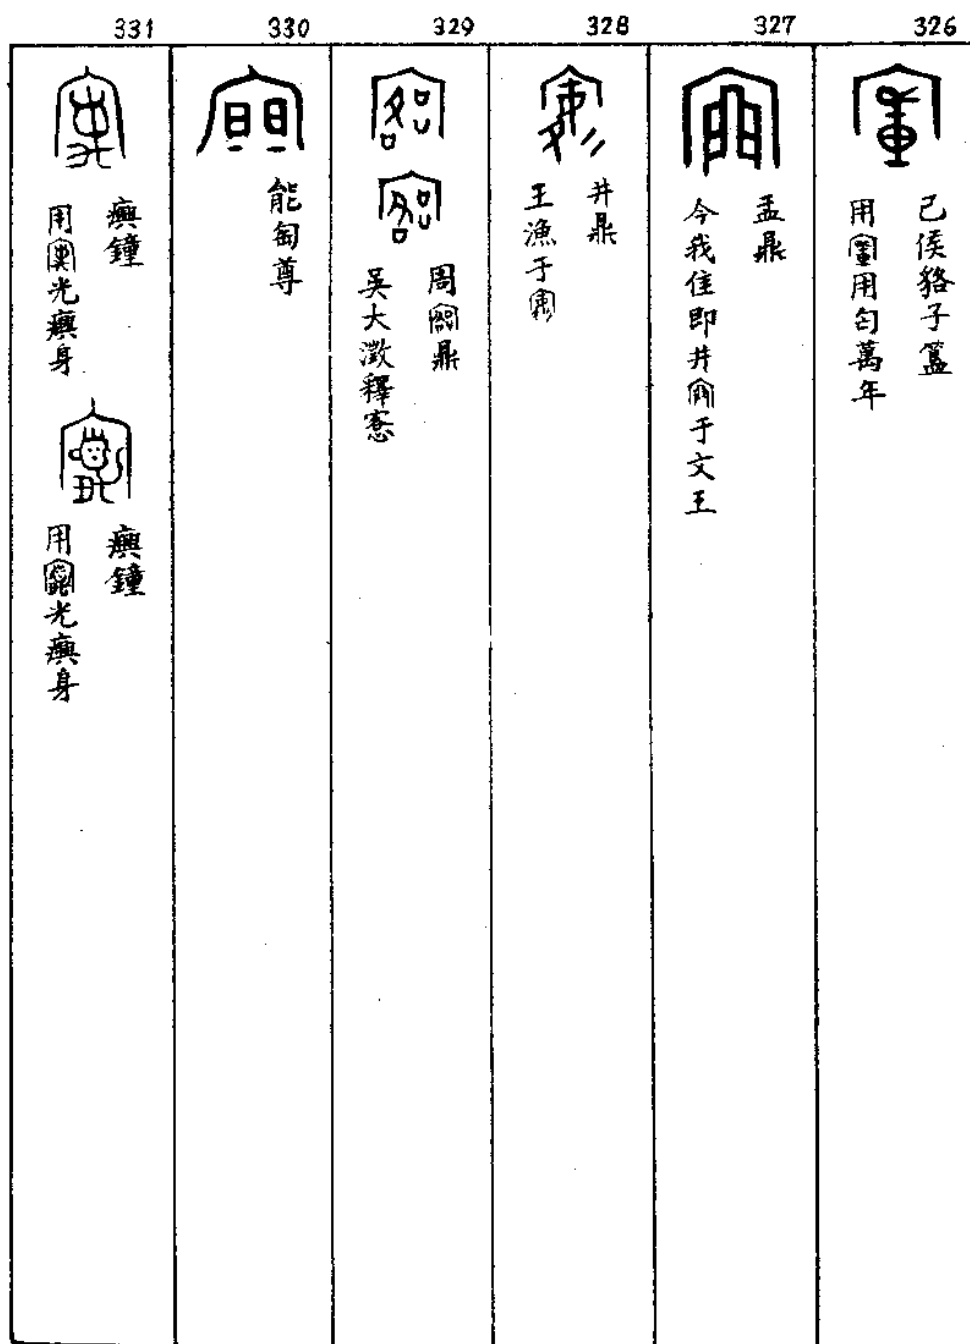 326
己侯貉子簋
用用匄萬年
327
盂鼎
今我隹即井于文王
328
井鼎
王漁于
329
周鼎
吳大澂釋愙
330
能匋尊
331
㾓鐘
用光㾓身
㾓鐘
用光㾓身